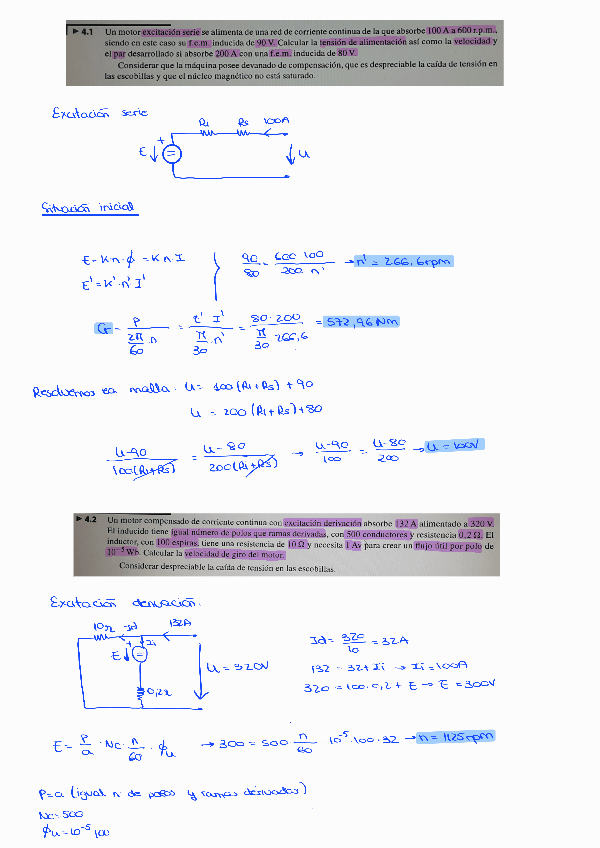 ▶ 4.1 Un motor excitación serie se alimenta de una red de corriente continua de la que absorbe 100 A a 600 r.p.m.,
siendo en este caso su f.e.m. inducida de 90 V. Calcular la tensión de alimentación así como la velocidad y
el par desarrollado si absorbe 200 A con una f.e.m. inducida de 80 V.
Considerar que la máquina posee devanado de compensación, que es despreciable la caída de tensión en
las escobillas y que el núcleo magnético no está saturado.
Excitación serie
Ri Rs 100A
+
E = U
Situación inicial
E = K·n·ϕ = K n I
E' = K'·n' I'
90/80 = 600·100/200·n' → n' = 266,6 rpm
G = P/(2π/60·n) = E' I'/(π/30·n') = 80·200/(π/30·266,6) = 572,96 Nm
Resolvemos ea malla: U = 100(Ri+Rs) + 90
U = 200(Ri+Rs)+80
U-90/100(Ri+Rs) = U-80/200(Ri+Rs) → U-90/100 = U-80/200 → U = 100V
▶ 4.2 Un motor compensado de corriente continua con excitación derivación absorbe 132 A alimentado a 320 V.
El inducido tiene igual número de polos que ramas derivadas, con 500 conductores y resistencia 0,2 Ω. El
inductor, con 100 espiras, tiene una resistencia de 10 Ω y necesita 1 Av para crear un flujo útil por polo de
10⁻⁵ Wb. Calcular la velocidad de giro del motor.
Considerar despreciable la caída de tensión en las escobillas.
Excitación derivación.
10Ω Id 132A
+ Ii
E = U = 320V
0,2Ω
Id = 320/10 = 32A
132 = 32 + Ii → Ii = 100A
320 = 100·0,2 + E → E = 300V
E = P/a · Nc · n/60 · ϕu → 300 = 500· n/60 10⁻⁵·100·32 → n = 1125 rpm
P=a (igual nº de polos y ramas derivadas)
Nc = 500
ϕu = 10⁻⁵ 100